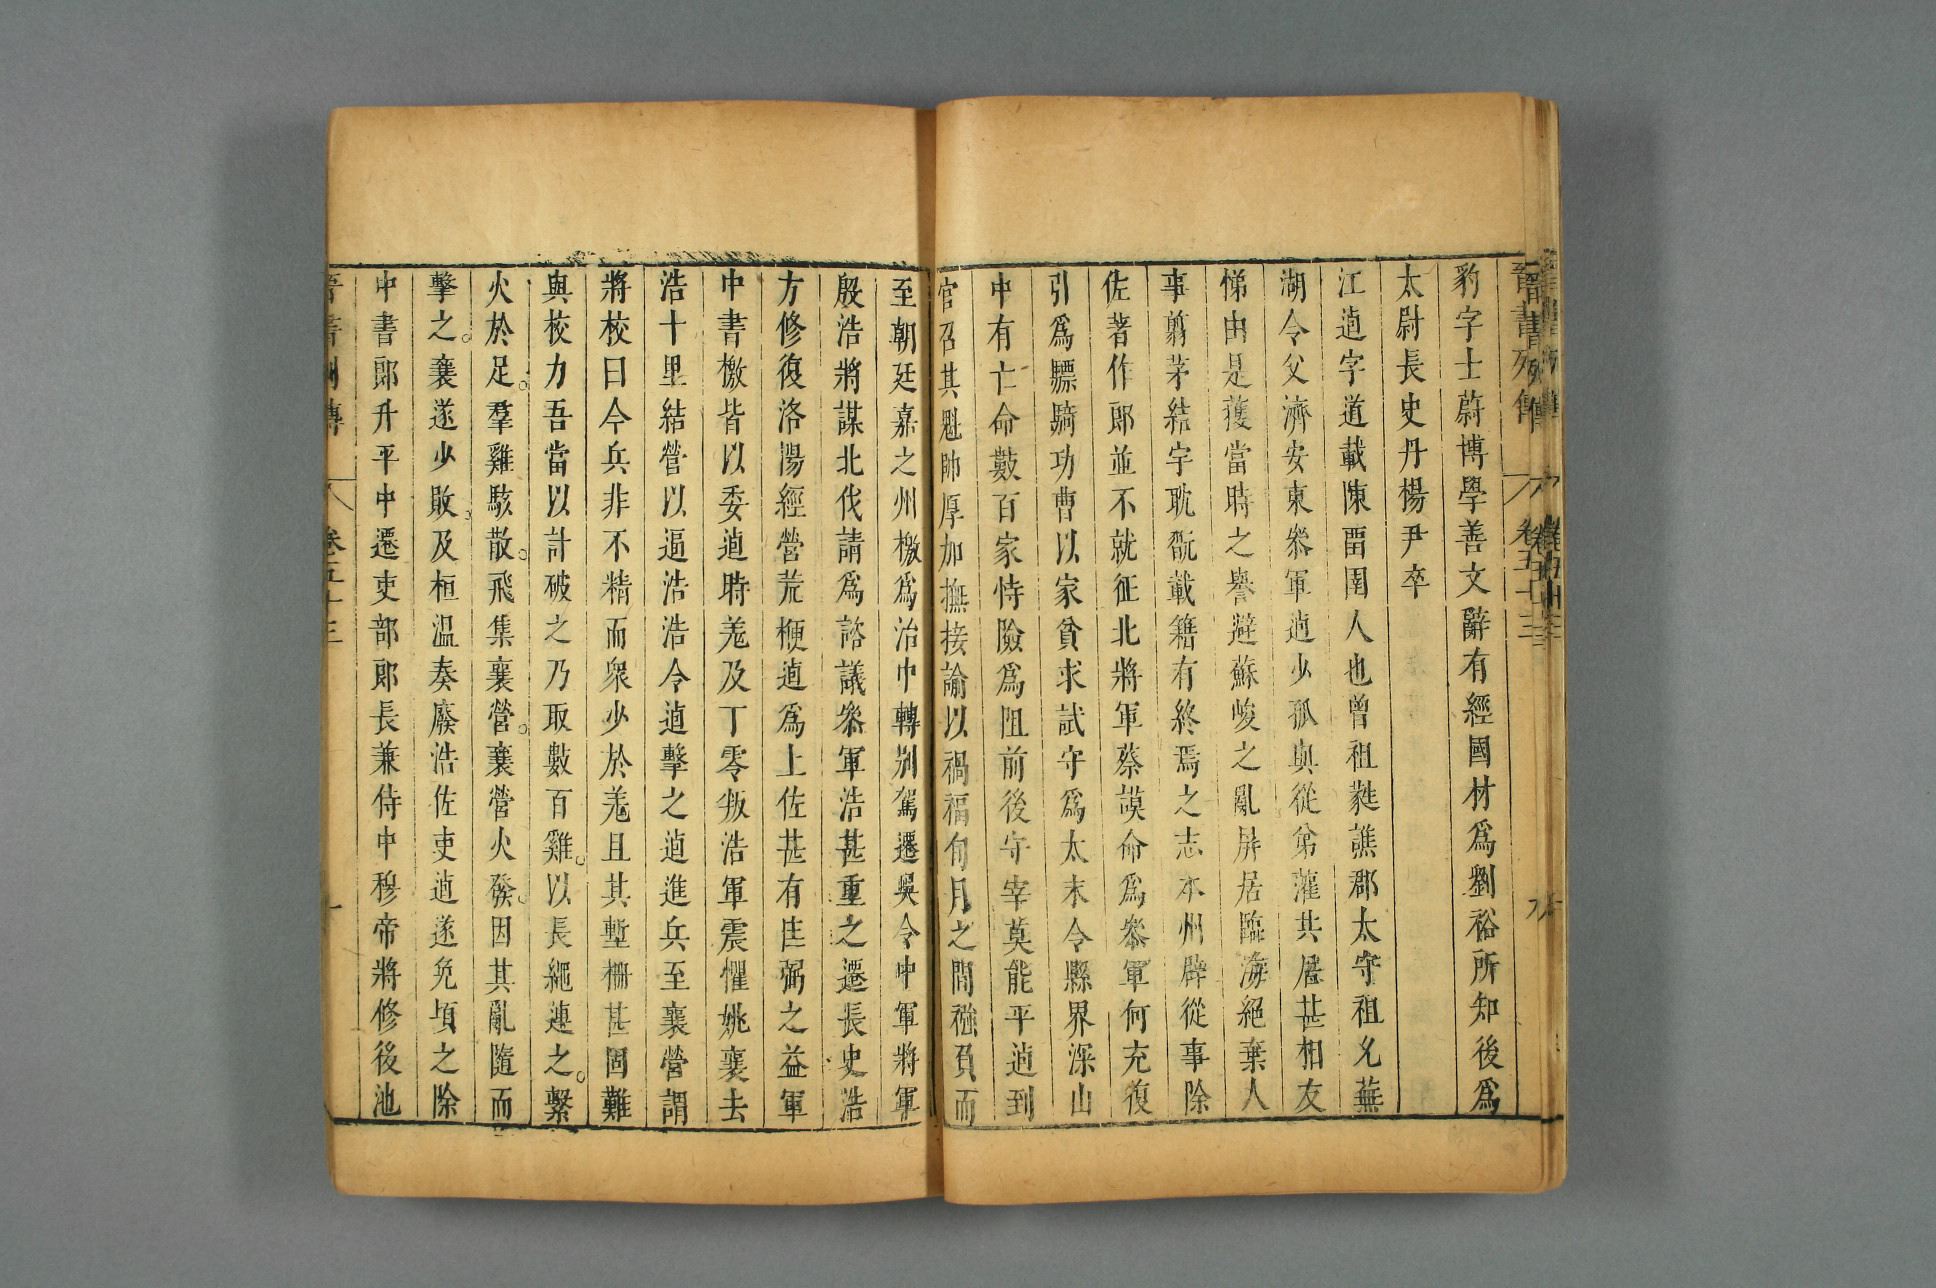 豹字士蔚博學善文辭有經國材爲劉裕所知後爲
太尉長史丹楊尹卒
江逌字道載陳畱圉人也曾祖蕤譙郡太守祖允蕪
湖令父濟安東叅軍逌少孤與從弟灌共居甚相友
悌由是獲當時之譽避蘇峻之亂屏居臨海絕棄人
事翦茅結宇耽翫載籍有終焉之志本州辟從事除
佐著作郎並不就征北將軍蔡謨命爲叅軍何充復
引爲驃騎功曹以家貧求試守爲太末令縣界深山
中有亡命數百家恃險爲阻前後守宰莫能平逌到
官召其魁帥厚加撫接諭以禍福旬月之間襁負而
至朝廷嘉之州檄爲治中轉別駕遷吳令中軍將軍
殷浩將謀北伐請爲諮議叅軍浩甚重之遷長史浩
方修復洛陽經營荒梗逌爲上佐甚有匡弼之益軍
中書檄皆以委逌時羌及丁零叛浩軍震懼姚襄去
浩十里結營以逼浩浩令逌擊之逌進兵至襄營謂
將校曰今兵非不精而衆少於羌且其塹柵甚固難
與校力吾當以計破之乃取數百雞以長繩連之繫
火於足羣雞駭散飛集襄營襄營火發因其亂隨而
擊之襄遂少敗及桓溫奏廢浩佐吏逌遂免頃之除
中書郎升平中遷吏部郎長兼侍中穆帝將修後池
晉書列傳 卷五十三